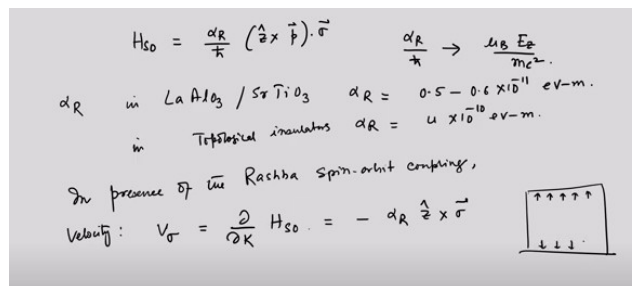 H_SO = α_R/ħ (ẑ × p⃗)·σ⃗    α_R/ħ → μ_B E_z / mc².
α_R in LaAlO₃ / SrTiO₃  α_R = 0.5 – 0.6 × 10⁻¹¹ ev-m.
in Topological insulators  α_R = 4 × 10⁻¹⁰ ev-m.
In presence of the Rashba spin-orbit coupling,
Velocity : V_σ = ∂/∂K H_SO. = – α_R ẑ × σ⃗